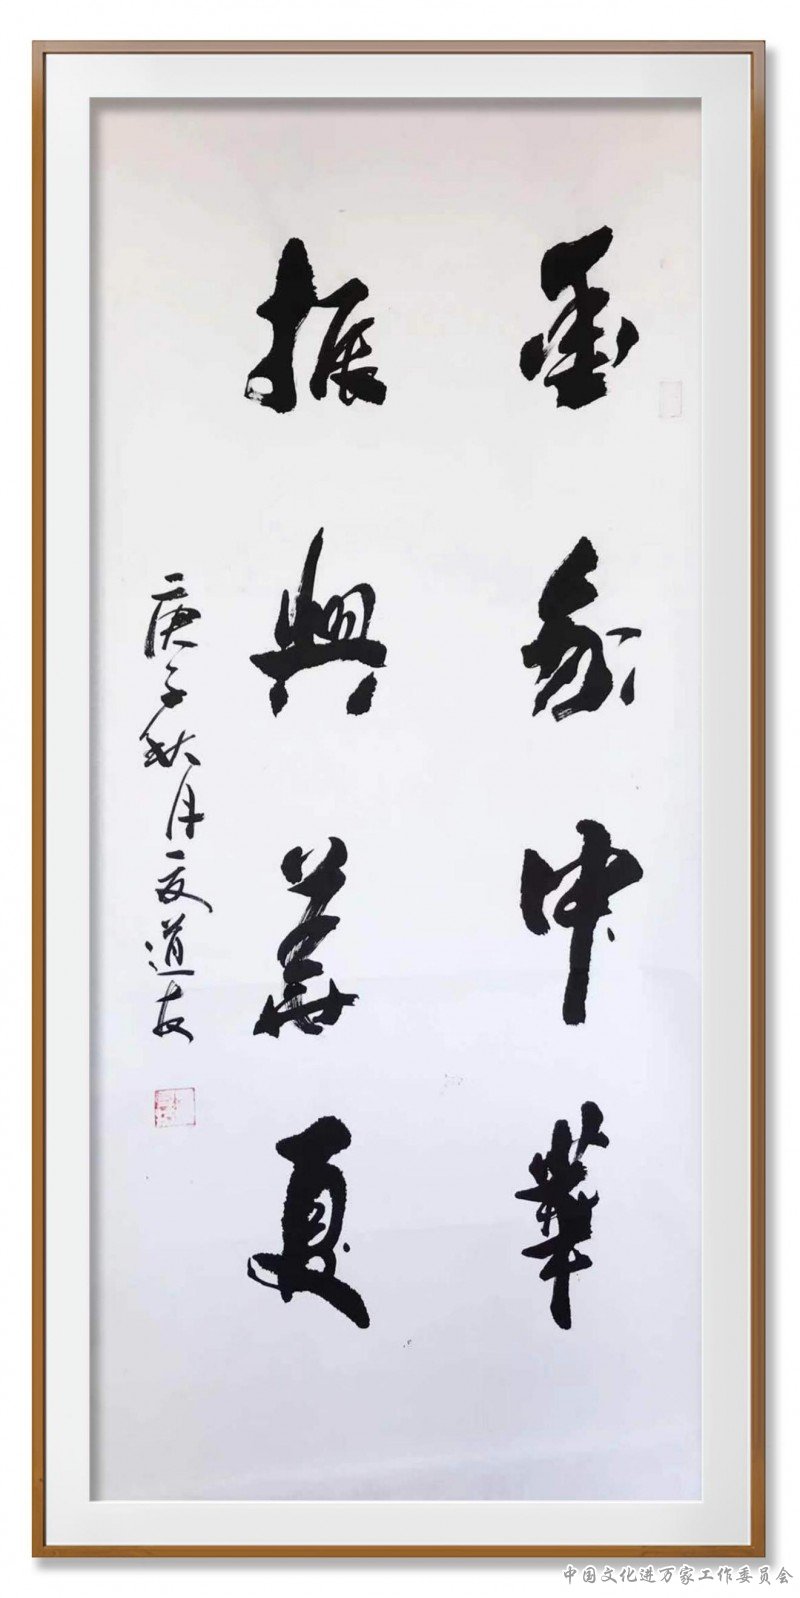 愛我中華
振興華夏
庚子秋月道友
中国文化进万家工作委员会